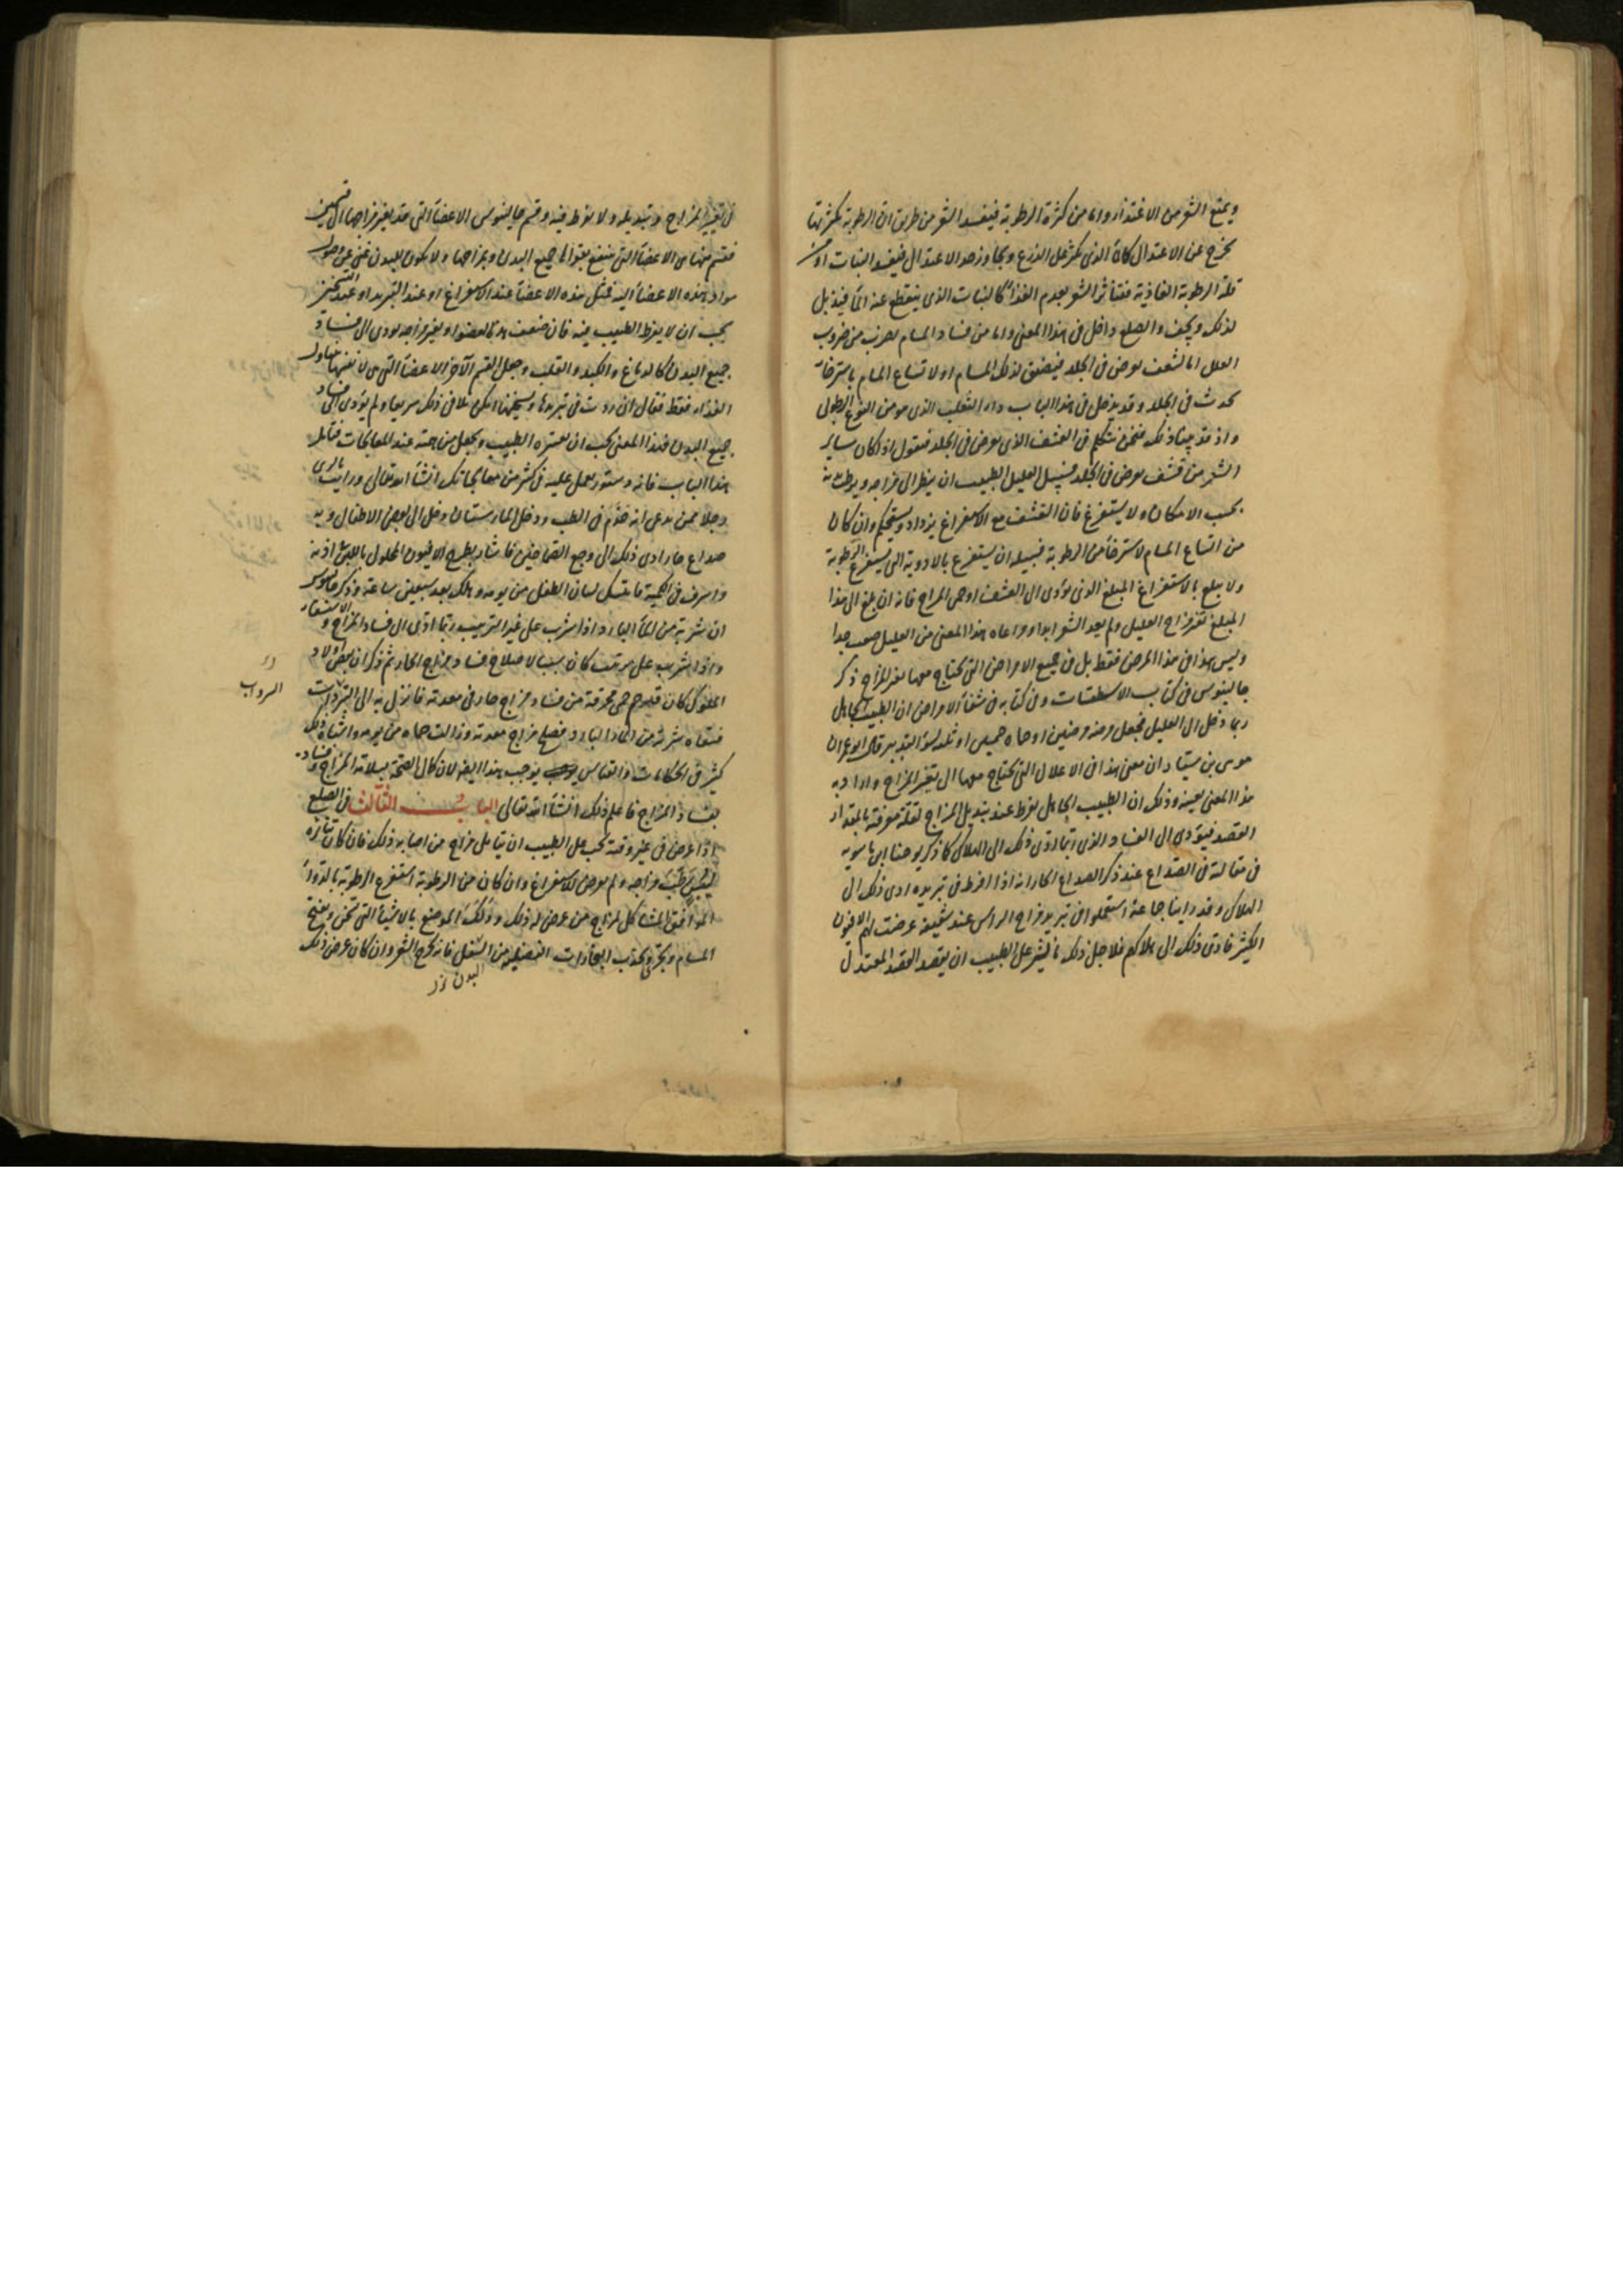 ويمنع الشعر من الاغتذاء واما من كثرة الرطوبة فيفسد الشعر من طريق ان الرطوبة بكثرتها
يخرج عن الاعتدال كالماء الذى يكثر على الزرع ويجاوز حد الاعتدال فيفسد النبات او من
قلة الرطوبة الغاذية فيتناثر الشعر بعدم الغذاء كالنبات الذى ينقطع عنه الماء فيذبل
لذلك ويجف والصلع داخل فى هذا المعنى واما من فساد المسام لضرب من ضروب
العلل اما لقشف يعرض فى الجلد فيضيق لذلك المسام او لاتساع المسام باسترخاء
يحدث فى الجلد وقد يدخل فى هذا الباب داء الثعلب الذى هو من النوع الطولى
واذ قد بينا ذلك فنحن نتكلم فى القشف الذى يعرض فى الجلد فنقول اذا كان سبب
الشعر من قشف يعرض فى الجلد فسبيل العليل الطبيب ان ينظر الى مزاجه ويرطب
بحسب الامكان ولا يستفرغ فان القشف مع الاستفراغ يزداد ويستحكم وان كان
من اتساع المسام لاسترخاء من الرطوبة فسبيله ان يستفرغ بالادوية التى يستفرغ الرطوبة
ولا يبلغ بالاستفراغ المبلغ الذى يؤدى الى القشف او حمى المزاج فانه ان بلغ الى هذا
المبلغ تغير مزاج العليل ولم يعد الشعر ابدا ومراعاه هذا المعنى من العليل صعب جدا
وليس هذا فى هذا المرض فقط بل فى جميع الامراض التى يحتاج معها تغير المزاج ذكر
جالينوس فى كتاب الاسطقسات وفى كتابه فى شفاء الامراض ان الطبيب الجاهل
ربما دخل الى العليل فجعل مرضه مرضين او حماه حميين او ثلثة بسوء التدبير قال ابو عمران
موسى بن سيار ان معنى هذا فى الاعلال التى يحتاج معها الى تغير المزاج واراد به
هذا المعنى بعينه وذلك ان الطبيب الجاهل يفرط عند تبديل المزاج لقلة معرفته بالمقدار
القصد فيؤدى الى الفساد الذى ربما ادى ذلك الى الهلاك كما ذكر يوحنا ابن ماسويه
فى مقالته فى الصداع عند ذكر الصداع الحار انه اذا افرط فى تبريده ادى ذلك الى
الهلاك وقد راينا جماعة استعملوا فى تبريد مزاج الراس عند شقيقة عرضت لهم الافيون
الكثير فادى ذلك الى هلاكهم فلاجل ذلك على الطبيب ان يقصد القصد المعتدل
فى تغير المزاج وتبديله ولا يفرط فيه وقسم جالينوس الاعضاء التى قد يغير مزاجها الى قسمين
فقسم منها هى الاعضاء التى ينتفع بقواها جميع البدن وبمزاجها ولا يكون للبدن غنى عن وصول
مواد هذه الاعضاء اليه فمثل هذه الاعضاء عند الاستفراغ او عند التبريد او عند التسخين
يجب ان لا يفرط الطبيب فيه فان ضعف هذا العضو او تغير مزاجه يودى الى فساد
جميع البدن كالدماغ والكبد والقلب وجعل القسم الآخر الاعضاء التى هى لا نفعها تناول
الغذاء فقط فقال ان زدت فى تبريدها وتسخينها امكن تلافى ذلك سريعا ولم يؤدى الى فساد
جميع البدن فهذا المعنى يجب ان يعتبره الطبيب ويجعل من همته عند المعالجات
هذا الباب فانه دستور يعمل عليه فى كثير من معالجاتك انشاء الله تعالى ورايت بالرى
رجلا ممن يدعى انه خدم فى الطب ودخل المارستان دخل الى بعض الاطفال وبه
صداع حار ادى ذلك الى وجع فاشار بطبخ الافيون المحلول باللبن فى اذنه
واسرف فى الكمية فامتسك لسان الطفل من يومه وهلك بعد سبعين ساعة وذكر جالينوس
ان شربة من الماء البارد اذا شرب على غير الترتيب ربما ادى الى فساد المزاج والاستسقاء
واذا شرب على مرتب كان سببا لاصلاح فساد مزاج الحار ثم ذكر ان بعض اولاد
الملوك كان قديم حمى محرقة من فساد مزاج حار فى معدته فانزل به الى السرداب
فسقاه شربة من الماء البارد فصلح مزاج معدته وزالت حماه من يومه واشباه ذلك
كثير فى الحكايات والقياس يوجب هذا ايضا لان كمال الصحة بسلامة المزاج وفساده
بفساد المزاج فاعلم ذلك انشاء الله تعالى الباب الثالث فى الصلع
اذا عرض فى غير وقته يجب على الطبيب ان يتامل مزاج من اصابه ذلك فان كان تناثره
ليبس رطب مزاجه ولم يعرض للاستفراغ وان كان من الرطوبة استفرغ الرطوبة بالدواء
الموافق المشاكل لمزاج من عرض له ذلك ودلك الموضع بالاشياء التى تسخن وتفتح
المسام ويجذب البخارات الفضلية من السفل فانه يخرج الشعر وان كان عرض ذلك
البدن
السرداب